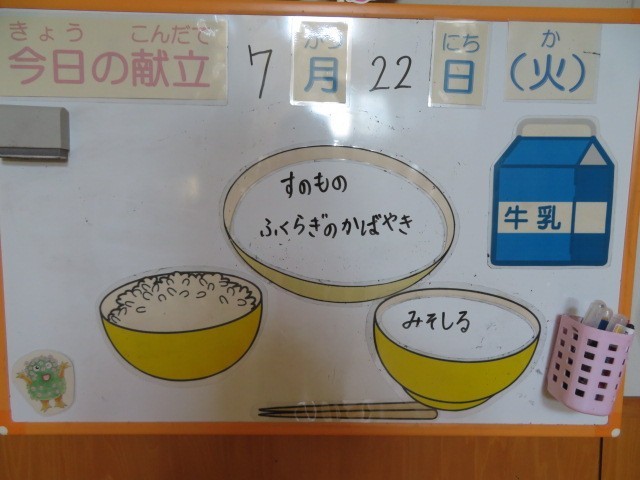 きょう こんだて
今日の献立
7 月 22 日 (火)
がつ にち か
すのもの
ふくらぎのかばやき
みそしる
牛乳